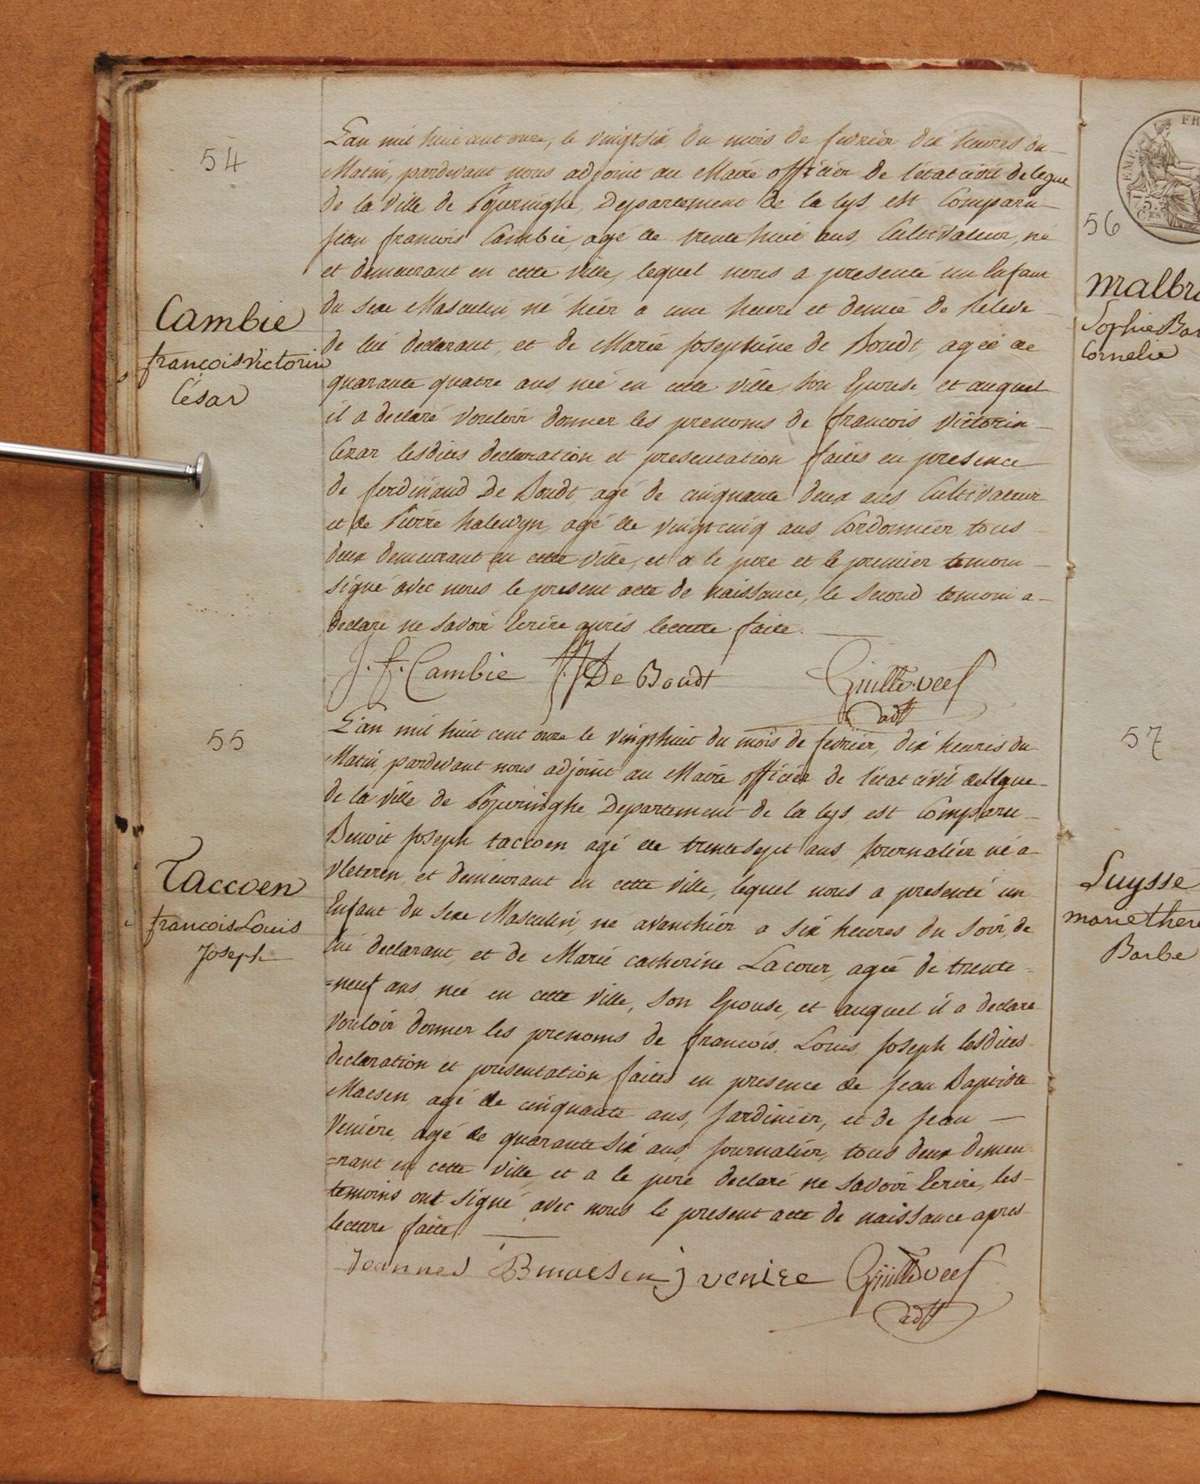 54
Cambie
françois Victorin
César
L'an mil huit cent onze, le vingt six du mois de fevrier dix heures du
Matin, pardevant nous adjoint au Maire officier de l'etat civil delegue
de la ville de Poperinghe, Departement de la lys est Comparu
jean francois Cambie, agé de trente huit ans, Cultivateur, né
et demeurant en cette ville, lequel nous a presenté un Enfant
du sexe Masculin né hier a une heure et demie de relevée
de lui declarant, et de Marie Josephine de Boudt, agée de
quarante quatre ans, née en cette ville, son Epouse, et auquel
il a declaré vouloir donner les prenoms de francois victorin
Cezar lesdites declaration et presentation faites en presence
de ferdinand De Boudt agé de cinquante deux ans Cultivateur
et de Pierre halewyn, agé de vingt cinq ans Cordonnier tous
deux demeurant en cette ville, et a le pere et le premier temoin
signé avec nous le present acte de naissance, le second temoin a
declaré ne savoir Ecrire après lecture faite.
J. f. Cambie De Boudt
adjt
55
Taccoen
francois Louis
Joseph
L'an mil huit cent onze le vingt huit du mois de fevrier, dix heures du
Matin, pardevant nous adjoint au Maire officier de l'etat civil delegue
de la ville de Poperinghe Departement de la lys est Comparu
Benoit Joseph taccoen agé de trente sept ans journalier né a
vleteren, et demeurant en cette ville, lequel nous a presenté un
Enfant du sexe Masculin, né avanthier a six heures du soir, de
lui declarant et de Marie Catherine Lacour, agée de trente
=neuf ans née en cette ville, son Epouse, et auquel il a declaré
vouloir donner les prenoms de francois Louis Joseph lesdites
declaration et presentation faites en presence de jean Baptiste
Maesen, agé de cinquante ans, jardinier, et de jean
Veniere, agé de quarante six ans, journalier, tous deux demeu
=rant en cette ville, et a le pere declaré ne savoir Ecrire, les
temoins ont signé avec nous le present acte de naissance apres
lecture faite.
Joannes B maesen j veniee
adjt
56
Sophie Bar
Cornelie
57
Luysse
marie there
Barbe